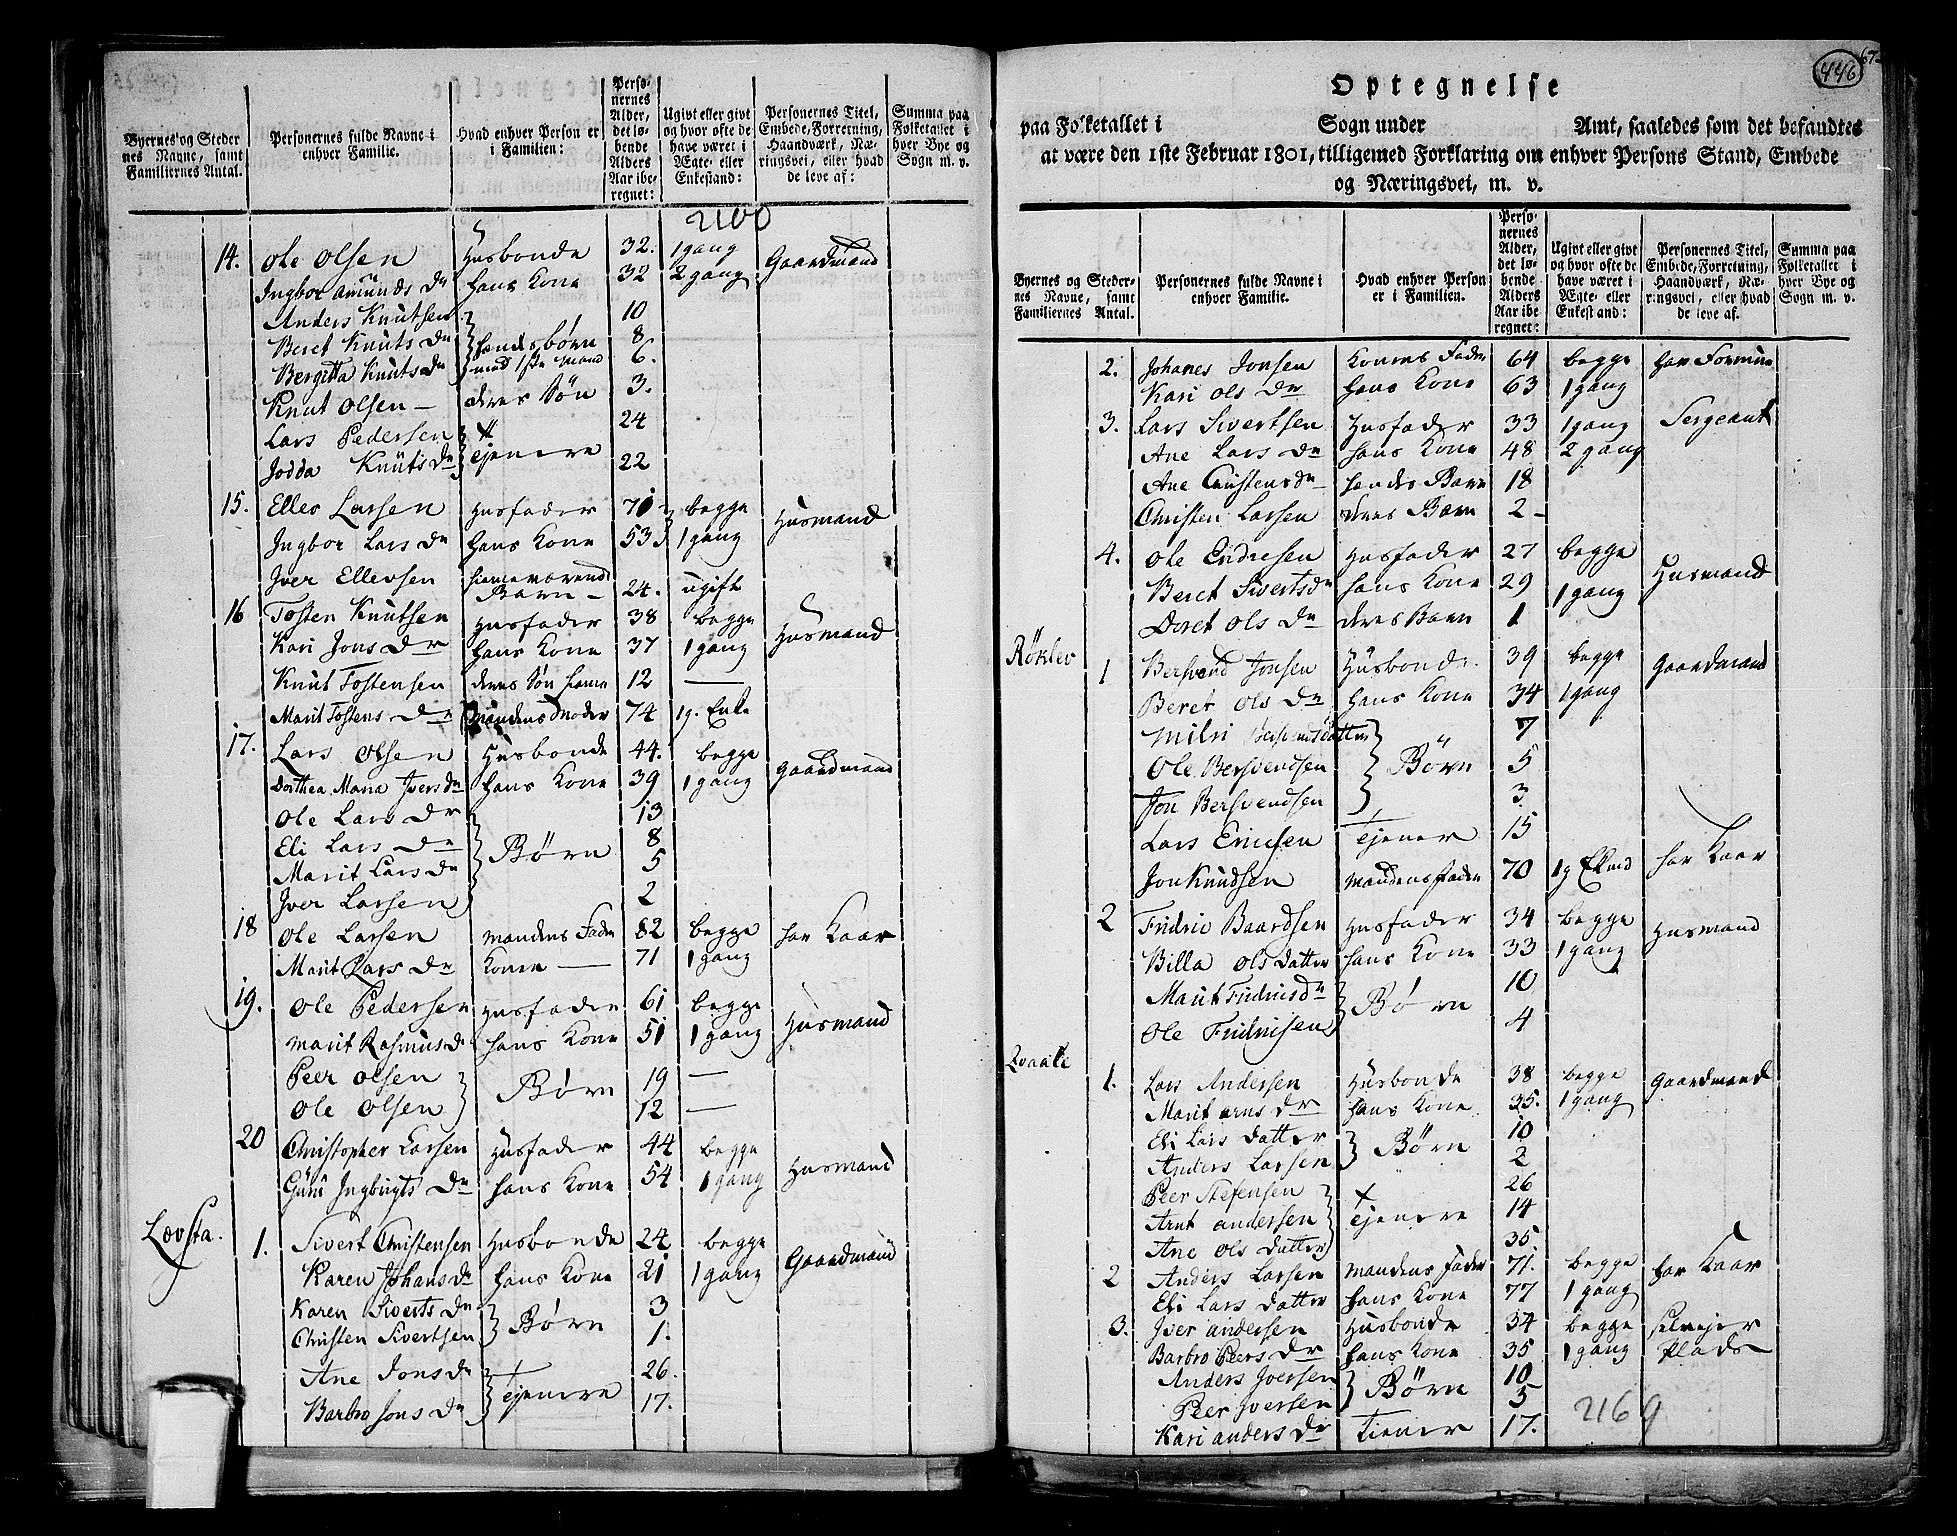 Byernes og Steder
nes Navne, samt
Familiernes Antal.
Personernes fulde Navne i
enhver Familie.
Hvad enhver Person er
i Familien:
Perso-
nernes
Alder,
det lø-
bende
Alders
Aar ibe-
regnet:
Ugivt eller givt
og hvor ofte de
have været i
Ægte- eller
Enkestand:
Personernes Titel,
Embede, Forretning,
Haandværk, Næ-
ringsvei, eller hvad
de leve af:
Summa paa
Folketallet i
hver Bye og
Sogn m. v.
2160
14. Ole Olsen Husbonde 32. 1 gang Gaardmand
Ingbor Amunds Dr hans Kone 32 2 gang
Anders Knutsen 10
Beret Knuts Dr hendes børn 8
Bergitta Knuts Dr med 1ste Mand 6.
Knut Olsen deres Søn 3.
Lars Pedersen 24
Jodda Knuts Dr tjenere 22
15. Ellev Larsen Husfader 71 begge Husmand
Ingbor Lars Dr hans Kone 53 1 gang
Iver Ellevsen hiemmeværende Barn 24. ugift
16 Tosten Knutsen Husfader 38 begge Husmand
Kari Jons Dr hans Kone 37 1 gang
Knut Tostensen deres Søn hiema 12
Marit Tostens Dr Mandens Moder 74 1g. Enke
17. Lars Olsen Husbonde 44. begge Gaardmand
Dorthea Maria Ivers Dr hans Kone 39 1 gang
Ole Lars Dr 13
Eli Lars Dr Børn 8
Marit Lars Dr 5
Iver Larsen 2
18 Ole Larsen Mandens Fader 82 begge har Kaar
Marit Lars Dr Konen 71 1 gang
19. Ole Pedersen Husfader 61 begge Husmand
Marit Rasmus D hans Kone 51 1 gang
Peer Olsen Børn 19 —
Ole Olsen 12 —
20 Christopher Larsen Husfader 44 begge Husmand
Guru Ingbrigts Dr hans Kone 54 1 gang
Løvsta. 1. Sivert Christensen Husbonde 24 begge Gaardmand
Karen Johans Dr hans Kone 21 1 gang
Karen Siverts Dr Børn 3
Christen Sivertsen 1.
Ane Jons Dr tjenere 26.
Barbro Jons Dr 17.
446
67
Optegnelse
paa Folketallet i Sogn under Amt, saaledes som det befandtes
at være den 1ste Februar 1801, tilligemed Forklaring om enhver Persons Stand, Embede
og Næringsvei, m. v.
Byernes og Steder-
nes Navne, samt
Familiernes Antal.
Personernes fulde Navne i
enhver Familie.
Hvad enhver Person
er i Familien.
Perso-
nernes
Alder,
det lø-
bende
Alders
Aar ibe-
regnet:
Ugivt eller givt
og hvor ofte de
have været i
Ægte- eller
Enkestand:
Personernes Titel,
Embede, Forretning,
Haandværk, Næ-
ringsvei, eller hvad
de leve af.
Summa paa
Folketallet i
hver Bye og
Sogn m. v.
2. Johanes Jonsen Konens Fader 64 begge har
Kari Ols Dr hans Kone 63 1 gang
3. Lars Sivertsen Husfader 33 1 gang Sergeant
Ane Lars Dr hans Kone 48 2 gang
Ane Christens Dr hendes Barn 18
Christen Larsen deres Barn 2 -
4. Ole Endresen Husfader 27 begge Husmand
Beret Siverts Dr hans Kone 29 1 gang
Doret Ols Dr deres Barn 1
Röklev 1 Bersvend Jonsen Husbond 39 begge Gaardmand
Beret Ols Dr hans Kone 34 1 gang
Milri Bersvendsdatter 7
Ole Bersvendsen Børn 5
Jon Bersvendsen 3
Lars Ericksen tjener 15
Jon Knudsen Mandens fader 70 1g Ekmd har Kaar
2 Fridric Baardsen Husfader 34 begge Husmand
Billa Ols Datter hans Kone 33 1 gang
Marit Fridrics Dr Børn 10
Ole Fridricsen 4
Qvaale 1. Lars Andersen Husbonde 38 begge Gaardmand
Marit Arns Dr hans Kone 35. 1 gang
Eli Lars Datter Børn 10
Anders Larsen 2
Peer Stefensen 26
Arnt Andersen tjenere 14
Ane Ols Datter 35
2 Anders Larsen Mandens Fader 71. begge har Kaar
Eli Lars Datter hans Kone 77 1 gang
3. Iver Andersen Husbonde 34 begge selvejer
Barbro Peers Dr hans Kone 35 1 gang Plads
Anders Iversen Børn 10
Peer Iversen 5
Kari Anders Dr tiener 17.
2169